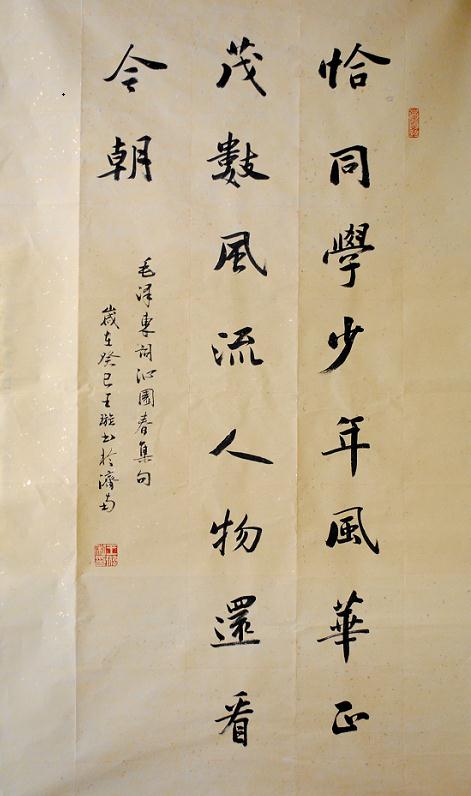 恰同學少年風華正
茂數風流人物還看
今朝
毛澤東詞沁園春集句
歲在癸巳王璇書於濟南